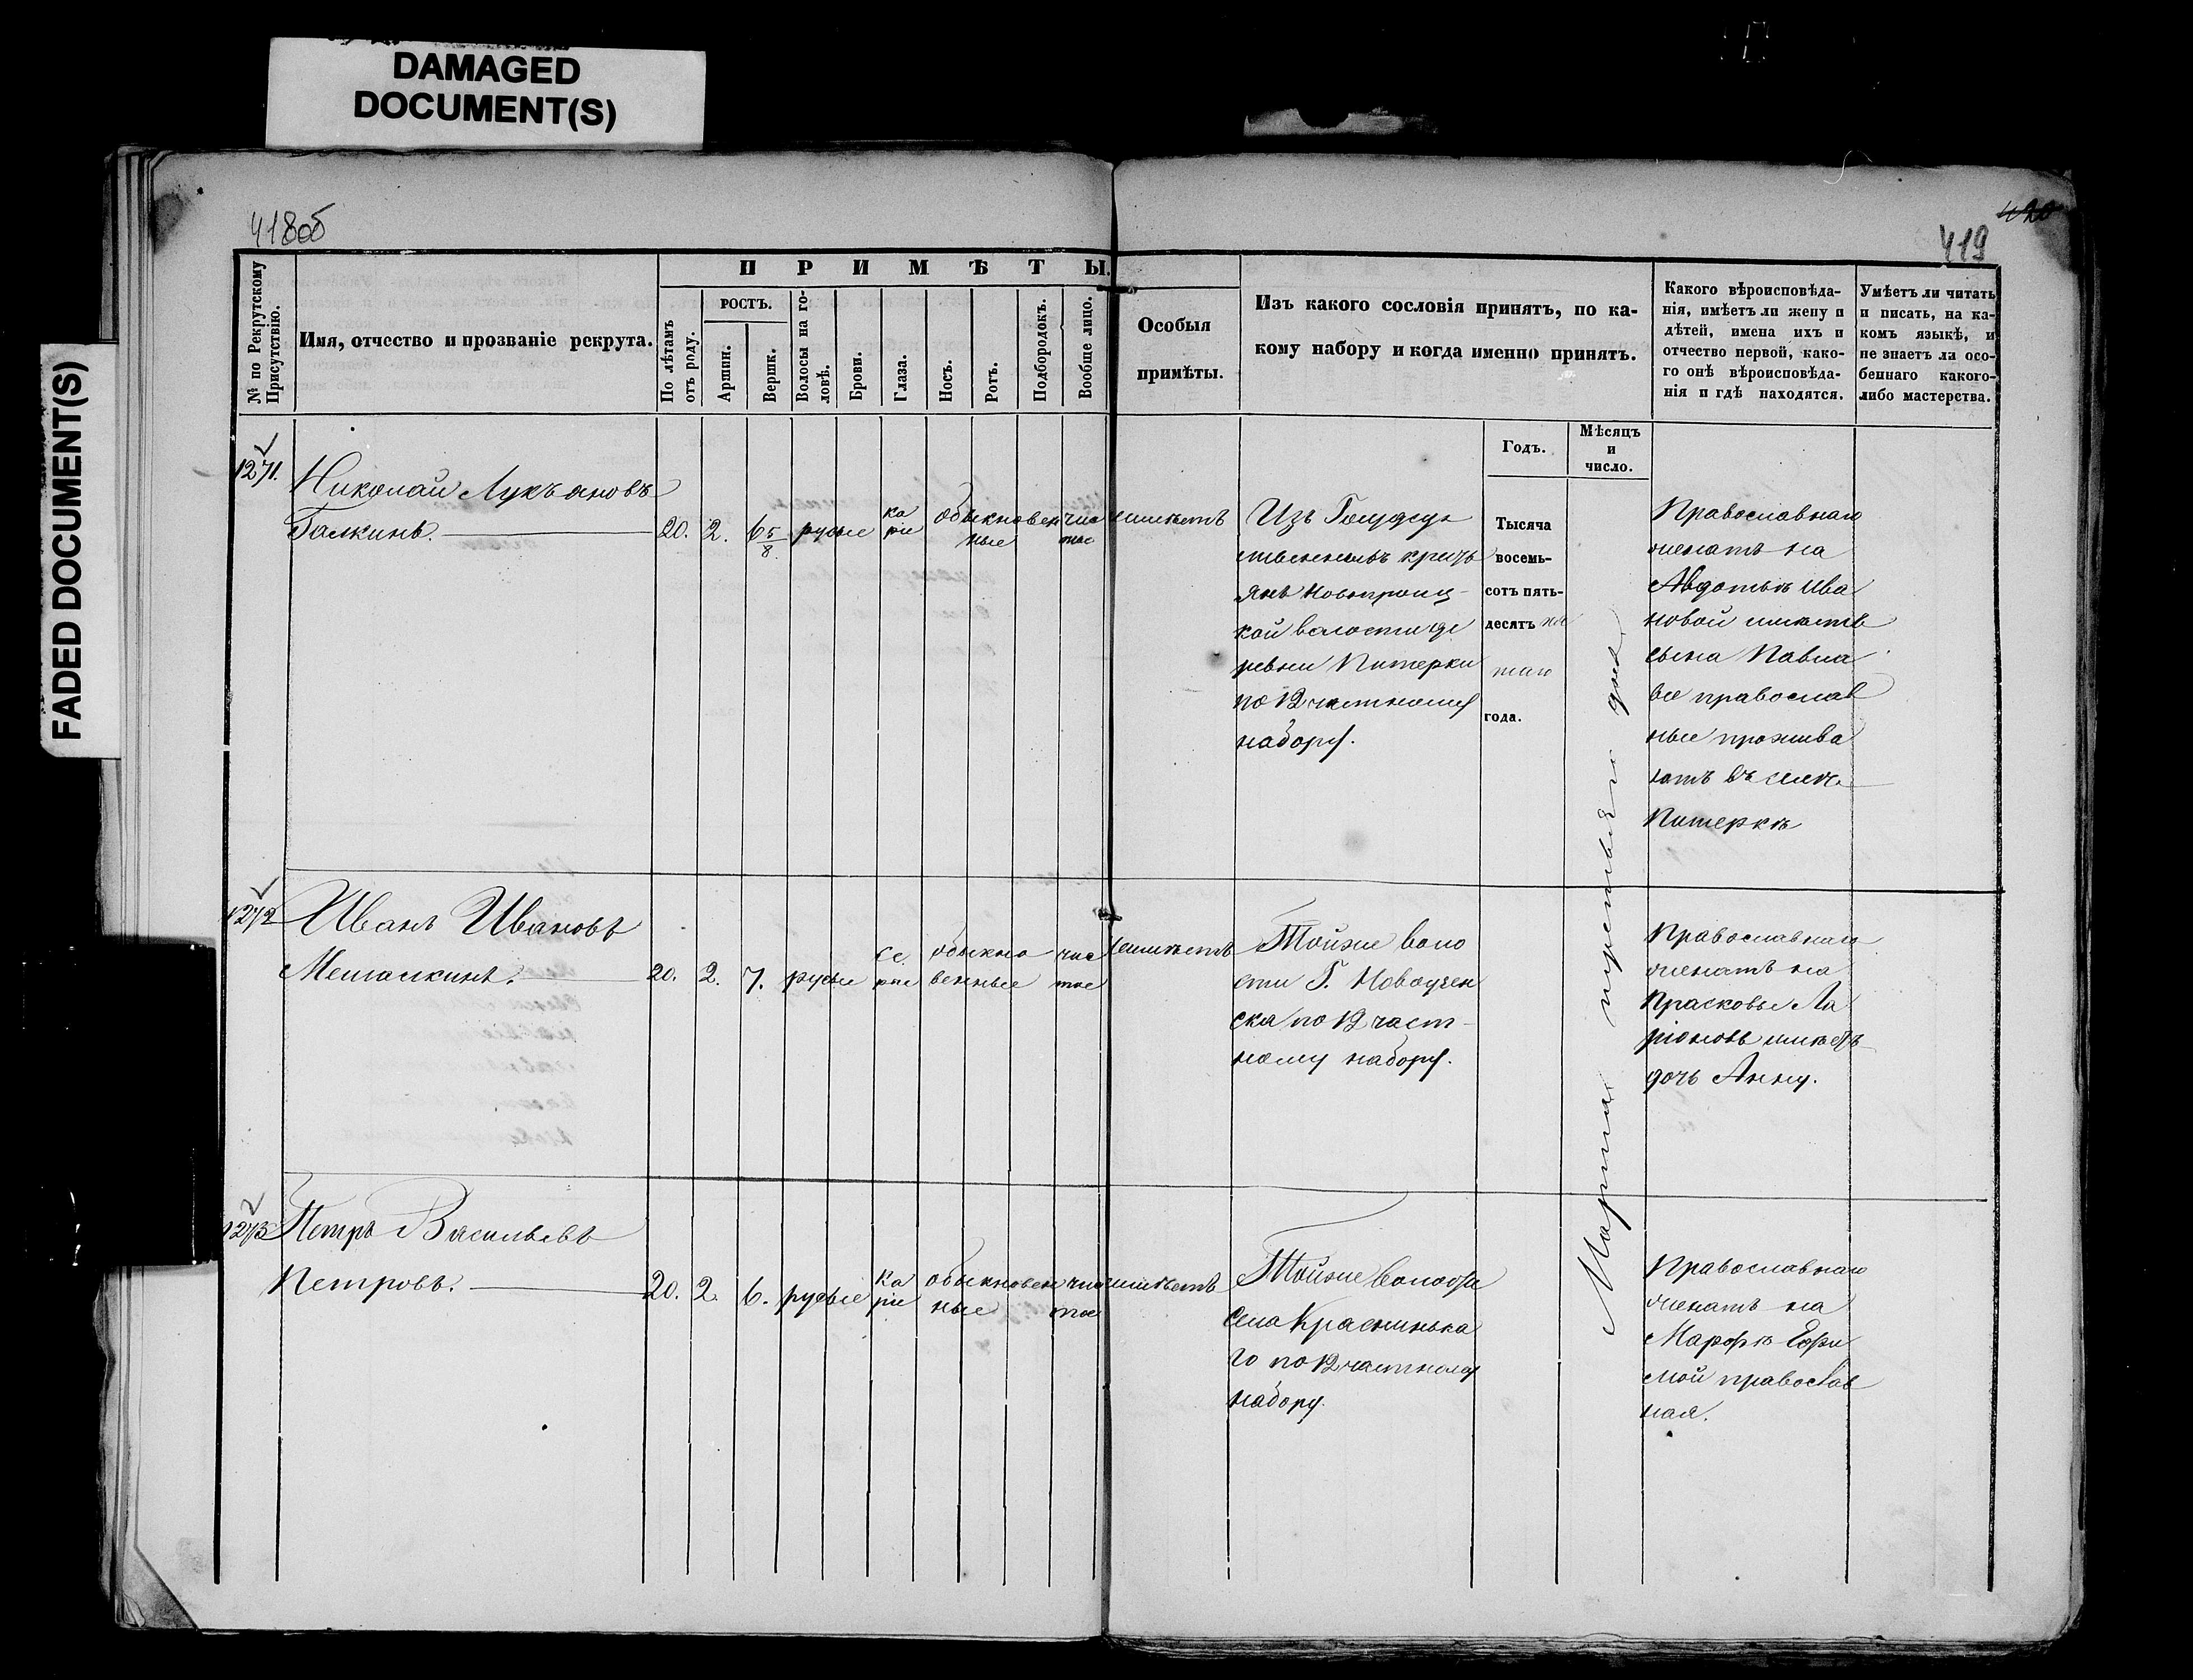 DAMAGED
DOCUMENT(S)
FADED DOCUMENT(S)
418об
420
419
№ по Рекрутскому
Присутствію.
Имя, отчество и прозваніе рекрута.
ПРИМѢТЫ.
По лѣтамъ
отъ роду.
РОСТЪ.
Аршин.
Вершк.
Волосы на го-
ловѣ.
Брови.
Глаза.
Носъ.
Ротъ.
Подбородокъ.
Вообще лицо.
Особыя
примѣты.
Изъ какого сословія принятъ, по ка-
кому набору и когда именно принятъ.
Годъ.
Мѣсяцъ
и
число.
Какого вѣроисповѣда-
нія, имѣетъ ли жену и
дѣтей, имена ихъ и
отчество первой, како-
го онѣ вѣроисповѣда-
нія и гдѣ находятся.
Умѣетъ ли читать
и писать, на ка-
комъ языкѣ, и
не знаетъ ли осо-
беннаго какого-
либо мастерства.
1271.
Николай Лукъяновъ
Галкинъ.
20. 2. 6 5/8 русые
ка
ріе
обыкновен
ные
чис
тое
неимѣетъ
Изъ Государ
ственныхъ крестъ
янъ Новотроиц-
кой волости де
ревни Питерки
по 12 частному
набору.
Тысяча
восемь-
сотъ пять-
десятъ пя
таго
года.
Марта третьяго дня
Православнаго
женатъ на
Авдотьѣ Ива
новой имѣетъ
сына Павла
все православ
ные прожива
ютъ въ селѣ
Питеркѣ
1272
Иванъ Ивановъ
Мешалкинъ.
20. 2. 7. русые
се
рые
обыкно
венные
чис
тое
неимѣетъ
Тойже воло
сти Г. Новоузен
ска по 12 част-
ному набору.
Православнаго
женатъ на
Прасковье Ла
ріоновѣ имѣетъ
дочь Анну.
1273
Петръ Васильевъ
Петровъ.
20. 2. 6. русые
ка
ріе
обыкновен
ные
чис
тое
неимѣетъ
Тойже волости
села Красенинька
го по 12 частному
набору.
Православнаго
женатъ на
Марфѣ Ефи
мой православ
ная.